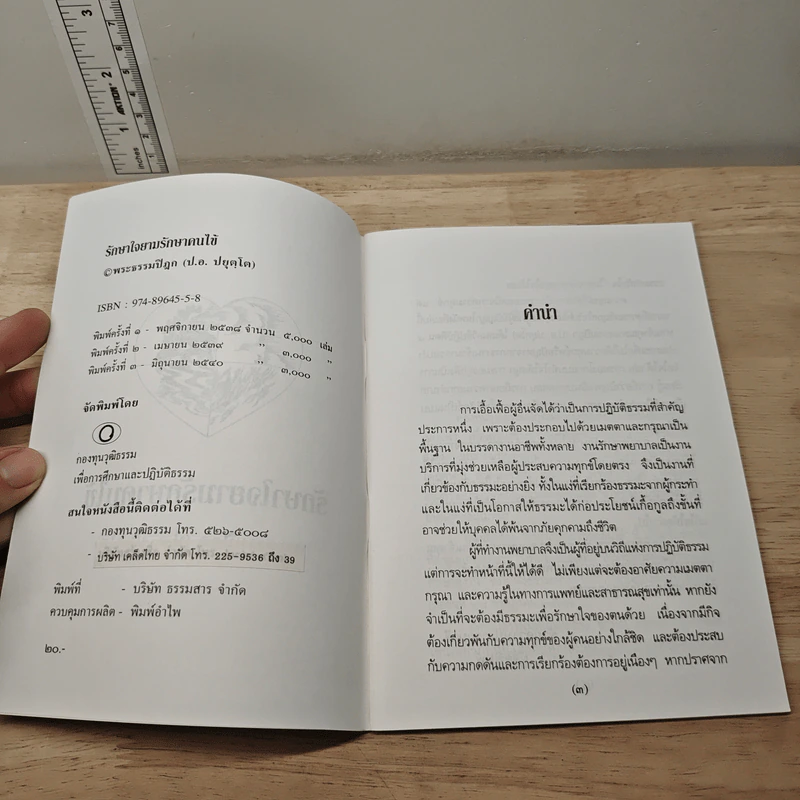 รักษาใจยามรักษาคนไข้
©พระธรรมปิฎก (ป.อ. ปยุตฺโต)
ISBN : 974-89645-5-8
พิมพ์ครั้งที่ ๑ - พฤศจิกายน ๒๕๓๘ จำนวน ๕,๐๐๐ เล่ม
พิมพ์ครั้งที่ ๒ - เมษายน ๒๕๓๙ " ๓,๐๐๐ "
พิมพ์ครั้งที่ ๓ - มิถุนายน ๒๕๔๐ " ๓,๐๐๐ "
จัดพิมพ์โดย
กองทุนวุฒิธรรม
เพื่อการศึกษาและปฏิบัติธรรม
สนใจหนังสือนี้ติดต่อได้ที่
- กองทุนวุฒิธรรม โทร. ๕๒๖-๕๐๐๘
- บริษัท เคล็ดไทย จำกัด โทร. 225-9536 ถึง 39
พิมพ์ที่ - บริษัท ธรรมสาร จำกัด
ควบคุมการผลิต - พิมพ์อำไพ
๒๐.-
คำนำ
การเอื้อเฟื้อผู้อื่นจัดได้ว่าเป็นการปฏิบัติธรรมที่สำคัญ
ประการหนึ่ง เพราะต้องประกอบไปด้วยเมตตาและกรุณาเป็น
พื้นฐาน ในบรรดางานอาชีพทั้งหลาย งานรักษาพยาบาลเป็นงาน
บริการที่มุ่งช่วยเหลือผู้ประสบความทุกข์โดยตรง จึงเป็นงานที่
เกี่ยวข้องกับธรรมะอย่างยิ่ง ทั้งในแง่ที่เรียกร้องธรรมะจากผู้กระทำ
และในแง่ที่เป็นโอกาสให้ธรรมะได้ก่อประโยชน์เกื้อกูลถึงขั้นที่
อาจช่วยให้บุคคลได้พ้นจากภัยคุกคามถึงชีวิต
ผู้ที่ทำงานพยาบาลจึงเป็นผู้ที่อยู่บนวิถีแห่งการปฏิบัติธรรม
แต่การจะทำหน้าที่นี้ให้ได้ดี ไม่เพียงแต่จะต้องอาศัยความเมตตา
กรุณา และความรู้ในทางการแพทย์และสาธารณสุขเท่านั้น หากยัง
จำเป็นที่จะต้องมีธรรมะเพื่อรักษาใจของตนด้วย เนื่องจากมีกิจ
ต้องเกี่ยวพันกับความทุกข์ของผู้คนอย่างใกล้ชิด และต้องประสบ
กับความกดดันและการเรียกร้องต้องการอยู่เนืองๆ หากปราศจาก
(๓)
inches 1 2 3
AKTION
5 6 7